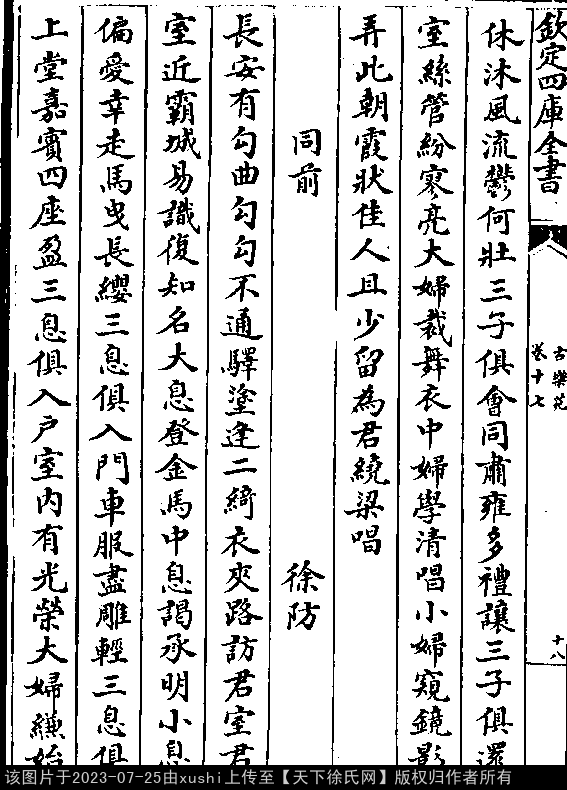 欽定四庫全書
古樂苑
卷十七
十八
休沐風流鬱何壯三子俱會同肅雍多禮讓三子俱還
室絲管紛寥亮大婦裁舞衣中婦學清唱小婦窺鏡影
弄此朝霞狀佳人且少留為君繞梁唱
同前
徐防
長安有勾曲勾勾不通驛塗逢二綺衣夾路訪君室君
室近霸城易識復知名大息登金馬中息謁承明小息
偏愛幸走馬曳長纓三息俱入門車服盡雕輕三息俱
上堂嘉賓四座盈三息俱入戶室內有光榮大婦縑始
该图片于2023-07-25由xushi上传至【天下徐氏网】版权归作者所有